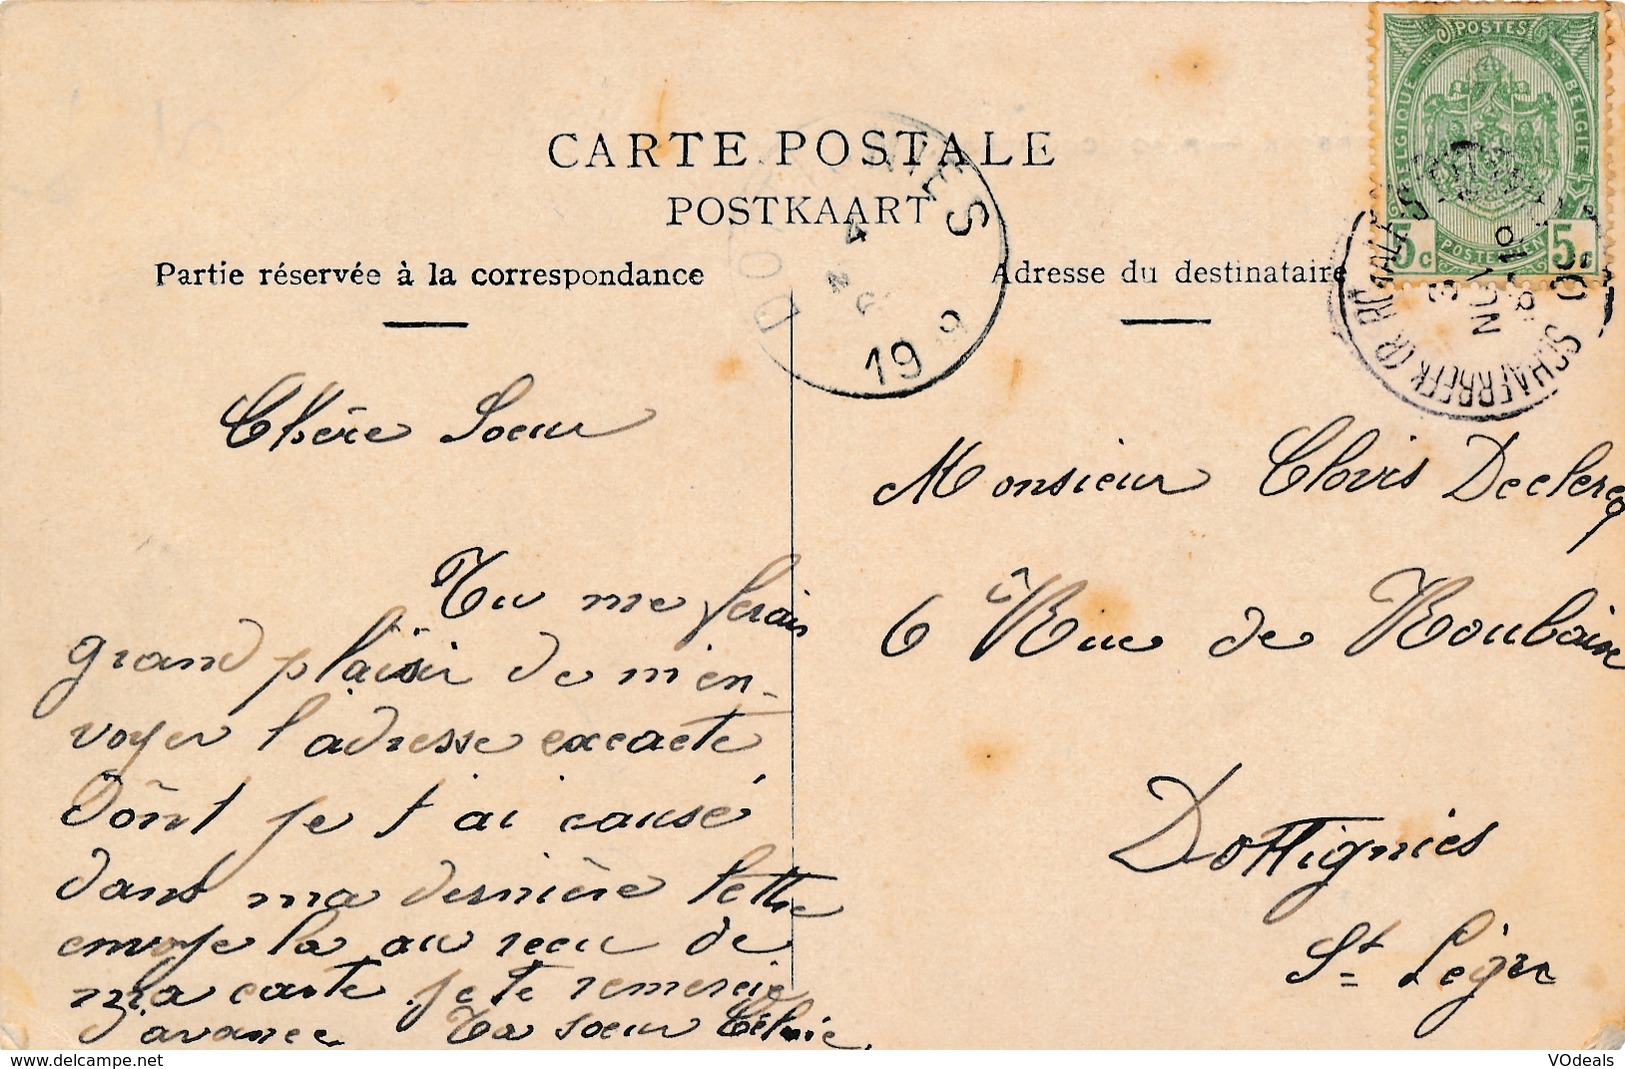 CARTE POSTALE
POSTKAART
Partie réservée à la correspondance
Adresse du destinataire
POSTES
BELGIQUE
BELGIE
5c
POSTERIJEN
5c
DOTTIGNIES
4
19 9
SCHAERBEEK
Chère Soeur
Tu me ferais
grand plaisir de m'en-
voyer l'adresse excacte
dônt je t'ai causé
dans ma dernière lettre
envoye la au recu de
ma carte je te remercie
d'avance Ta soeur
Monsieur Clovis Declercq
6 Rue de Roubaix
Dottignies
St Léger
http://www.delcampe.net
VOdeals